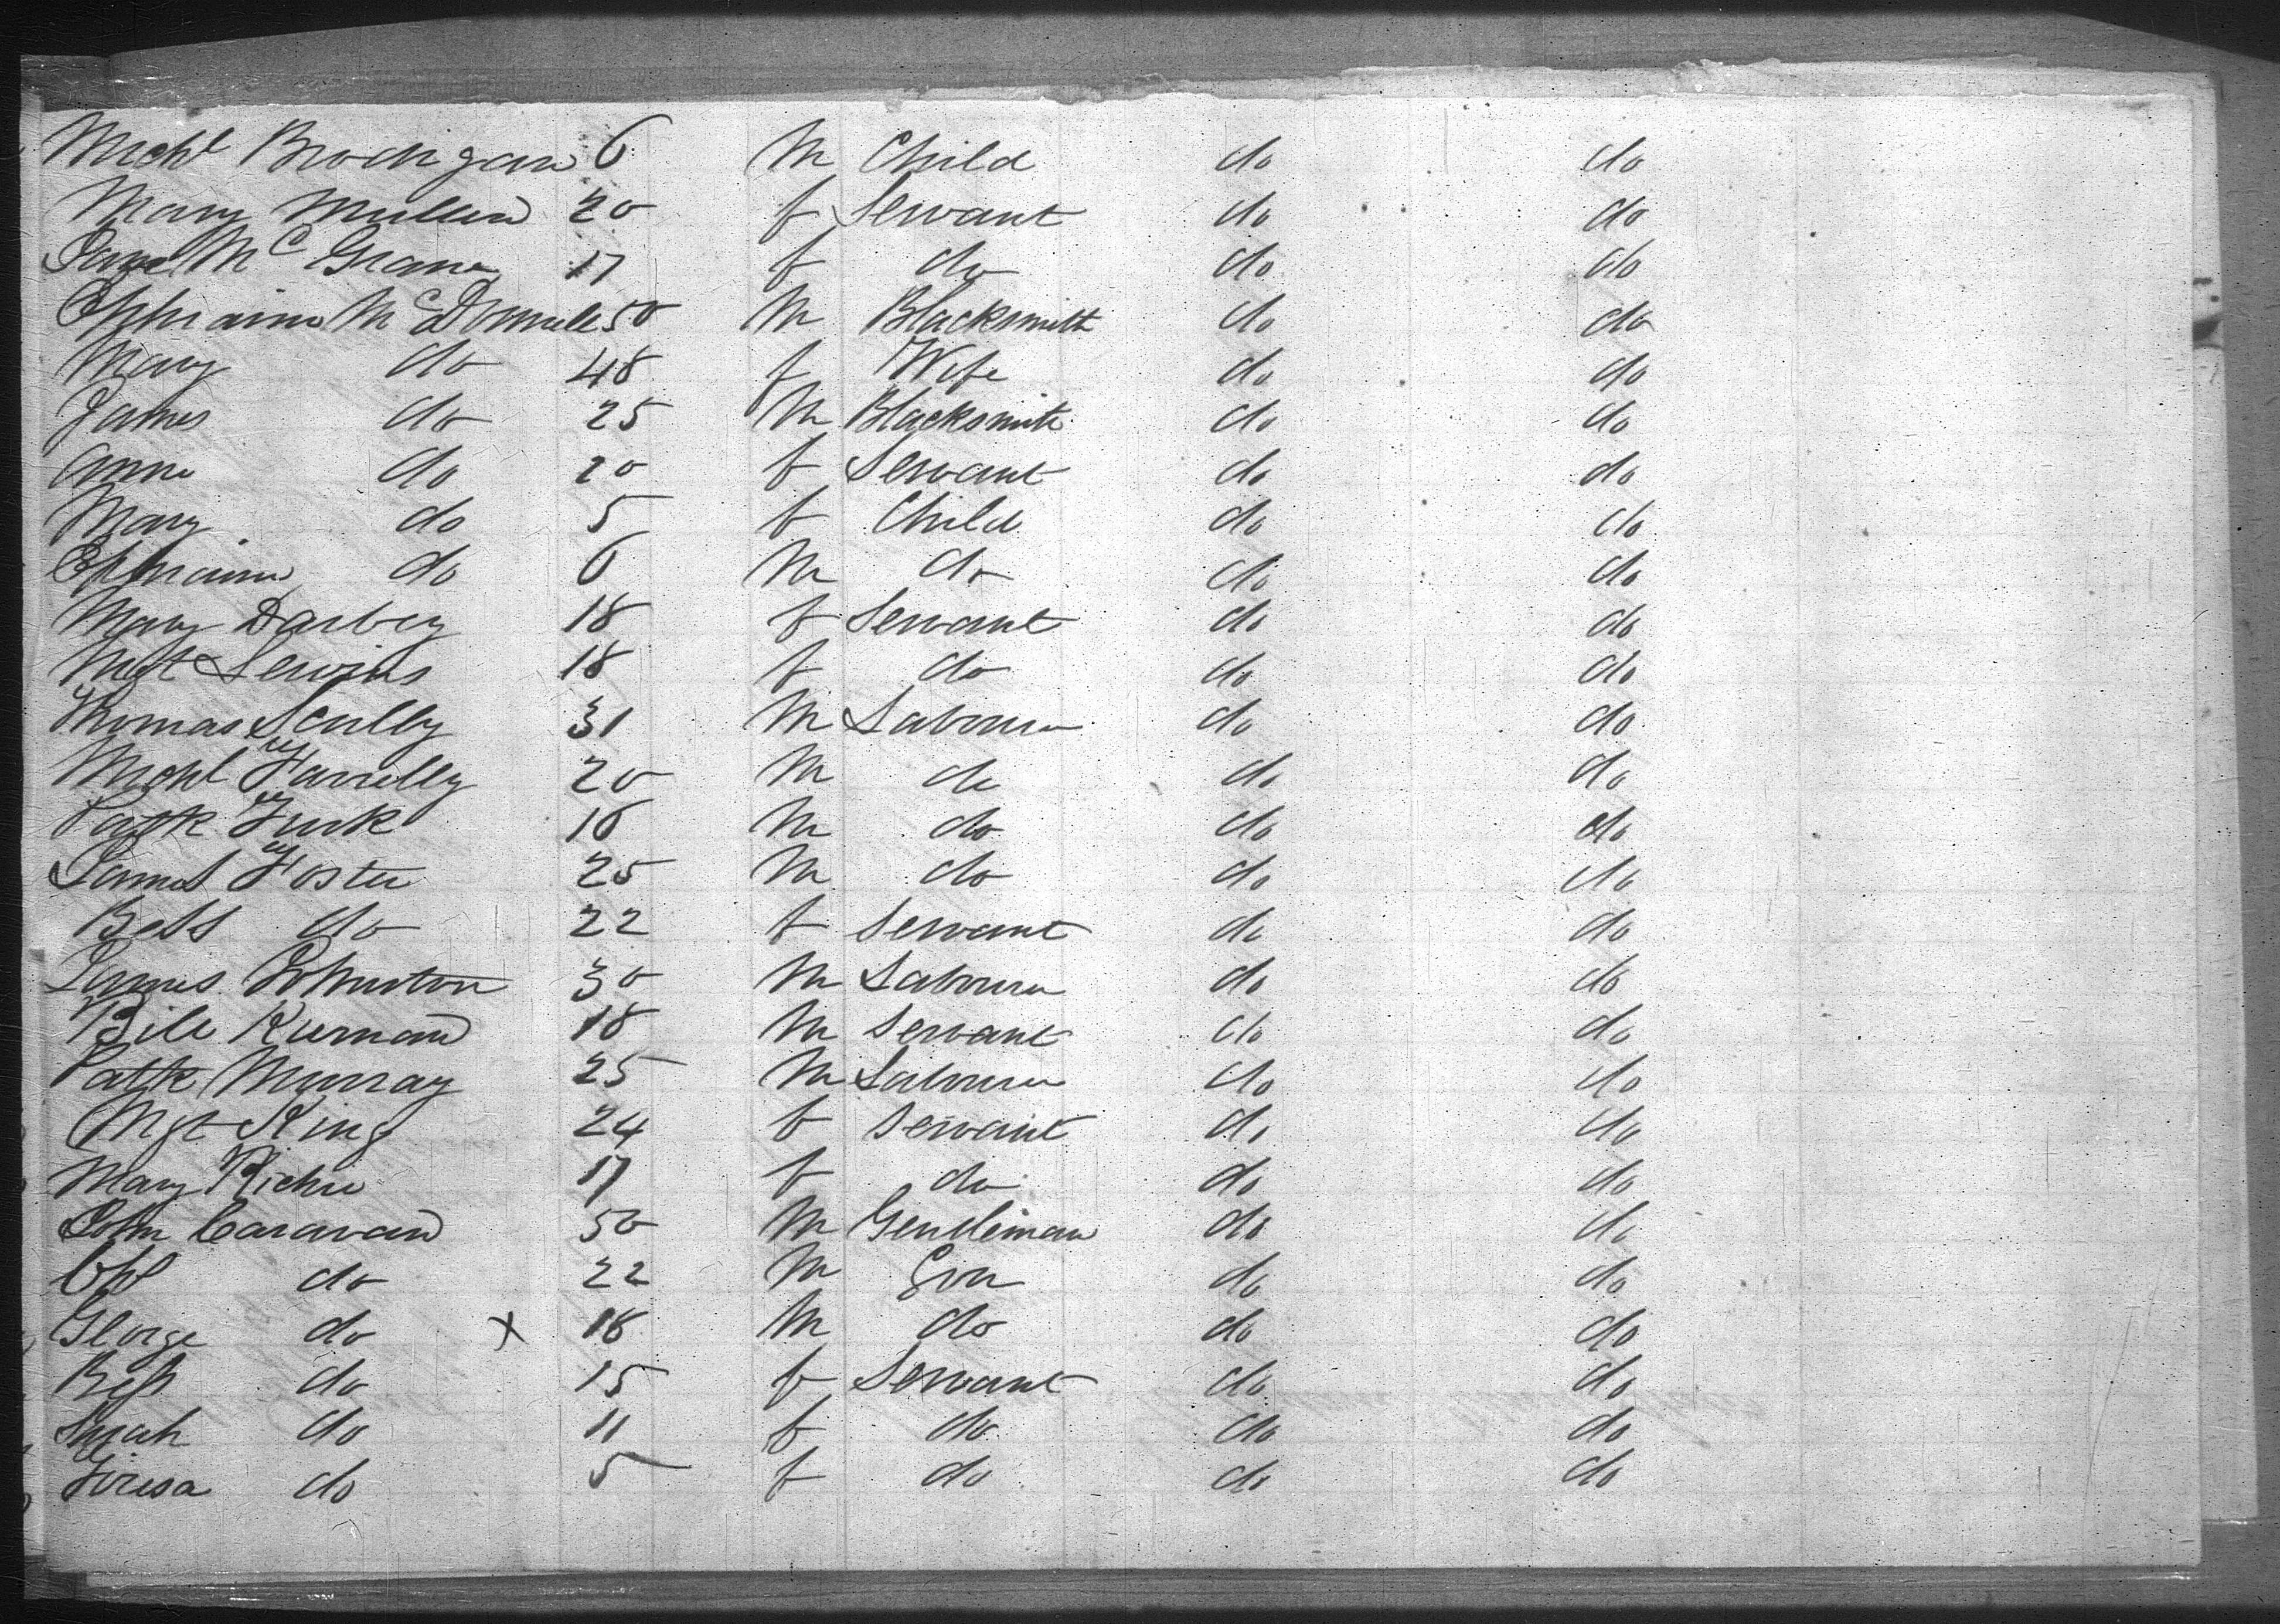 Michl Brodigan 6 M Child do do
Mary Mullen 20 f Servant do do
Jane McGrane 17 f do do do
Ephraim McDonnell 50 M Blacksmith do do
Mary do 48 f Wife do do
James do 25 M Blacksmith do do
Anne do 20 f Servant do do
Mary do 5 f Child do do
Ephraim do 6 M do do do
Mary Darbey 18 f Servant do do
Mgt 18 f do do do
Thomas Scully 31 M Labourer do do
Michl Farrelly 20 M do do do
Patk 18 M do do do
James Foster 25 M do do do
Bess do 22 f Servant do do
James Johnston 30 M Labourer do do
Bile Kiernan 18 M Servant do do
Patk Murray 25 M Labourer do do
Mgt King 24 f Servant do do
Mary Richie 17 f do do do
John Caravan 50 M Gentleman do do
do 22 M Son do do
George do x 18 M do do do
Bess do 15 f Servant do do
do 11 f do do do
do 5 f do do do